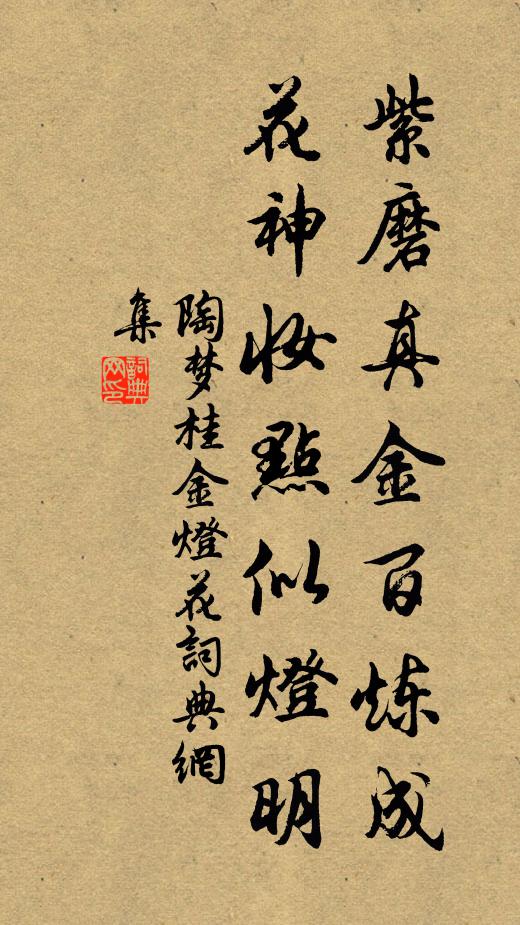 紫磨真金百炼成
花神妆點似燈明
陶梦桂金燈花詞典網
集
詞典網印